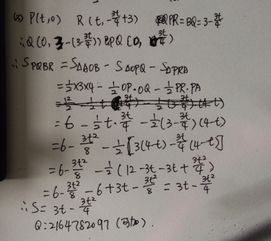 (3) P(t,0) R(t,-3t/4+3) PR=BQ=3-3t/4
∴Q(0,3-(3-3t/4))即Q(0,3t/4)
∴S_PQBR=S△AOB-S△OPQ-S△PRA
=1/2×3×4-1/2OP·OQ-1/2PR·PA
=6-1/2t·3t/4-1/2(3-3t/4)(4-t)
=6-3t²/8-1/2[3(4-t)-3t/4(4-t)]
=6-3t²/8-1/2(12-3t-3t+3t²/4)
=6-3t²/8-6+3t-3t²/8=3t-3t²/4
∴S=3t-3t²/4
Q:2164782097(可加)